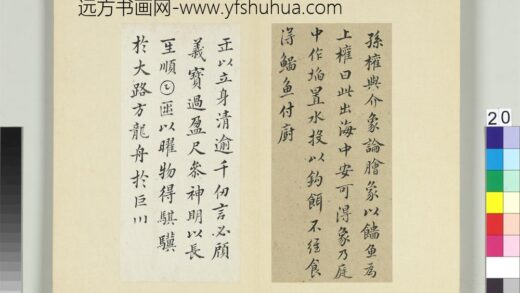 远方书画网-www.yfshuhua.com
孫權與介象論膾象以鯔魚爲
上權曰此出海中安可得象乃庭
中作埳置水投以鈎餌不經食
得鯔魚付廚
正以立身清逾千仞言必顧
義寶過盈尺參神明以長
生順以曜物得騏驥
於大路方龍舟於巨川
20